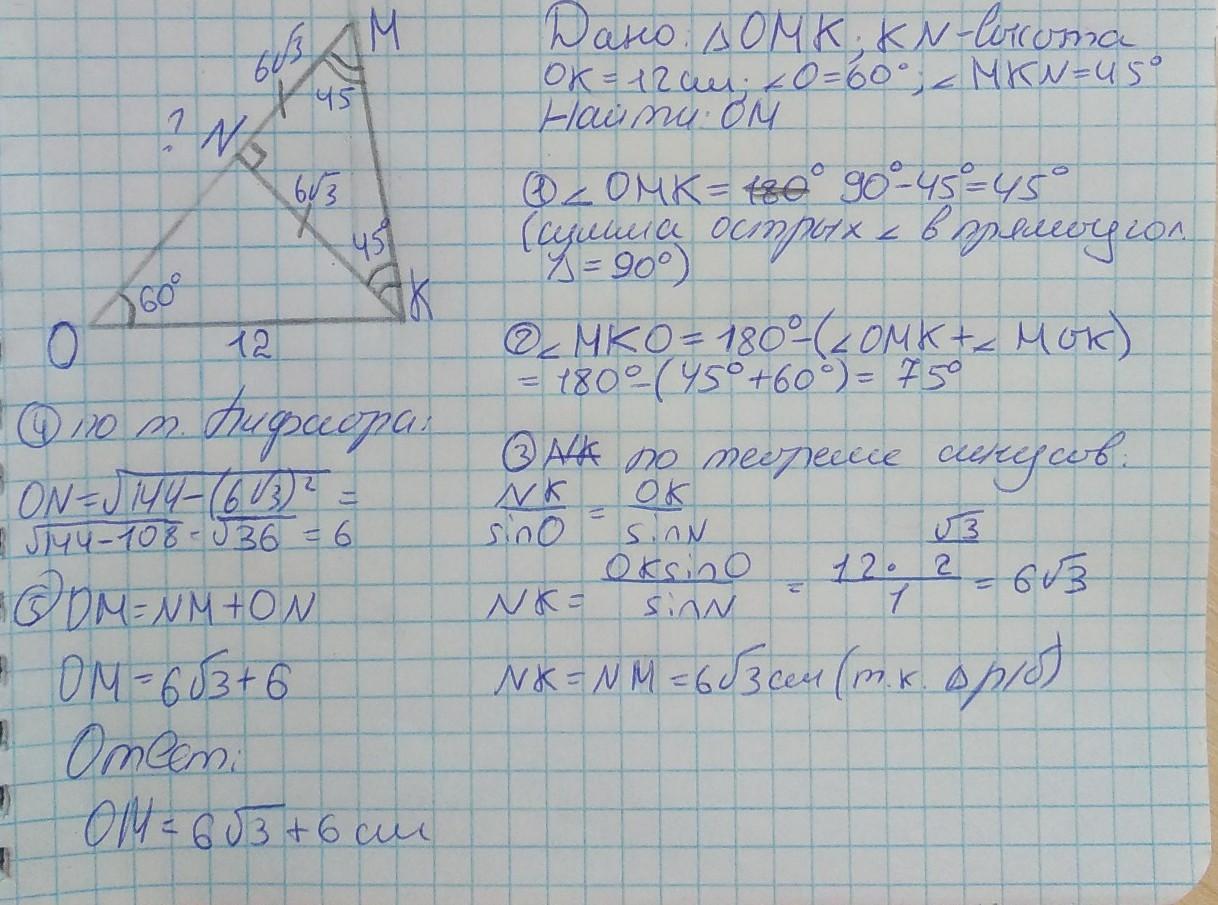 M
6√3
45
? N
6√3
45°
60°
O
12
K
Дано: △OMK; KN-высота
OK = 12 см; ∠O=60°; ∠MKN=45°
Найти: OM
① ∠OMK = 180° 90°-45°=45°
(сумма острых ∠ в прямоугол.
△ = 90°)
② ∠MKO = 180°-(∠OMK+∠MOK)
= 180°-(45°+60°) = 75°
③ NK по теореме синусов:
NK/sinO = OK/sinN
NK = OKsinO/sinN = 12·√3/2/1 = 6√3
NK = NM = 6√3 см (т.к. △ р/б)
④ по т. Пифагора:
ON = √144-(6√3)² =
√144-108 = √36 = 6
⑤ OM = NM + ON
OM = 6√3 + 6
Ответ:
OM = 6√3 + 6 см